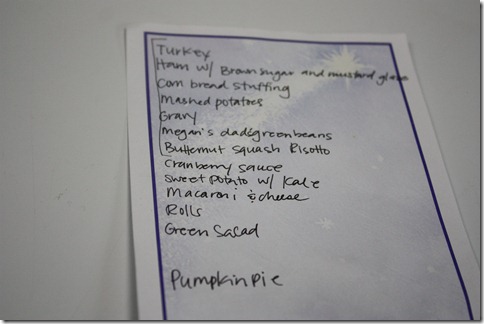 Turkey
Ham w/ Brown sugar and mustard glaze
Corn bread stuffing
Mashed potatoes
Gravy
Megan's dad's green beans
Butternut squash Risotto
Cranberry sauce
Sweet potato w/ Kale
Macaroni & cheese
Rolls
Green Salad
Pumpkin Pie